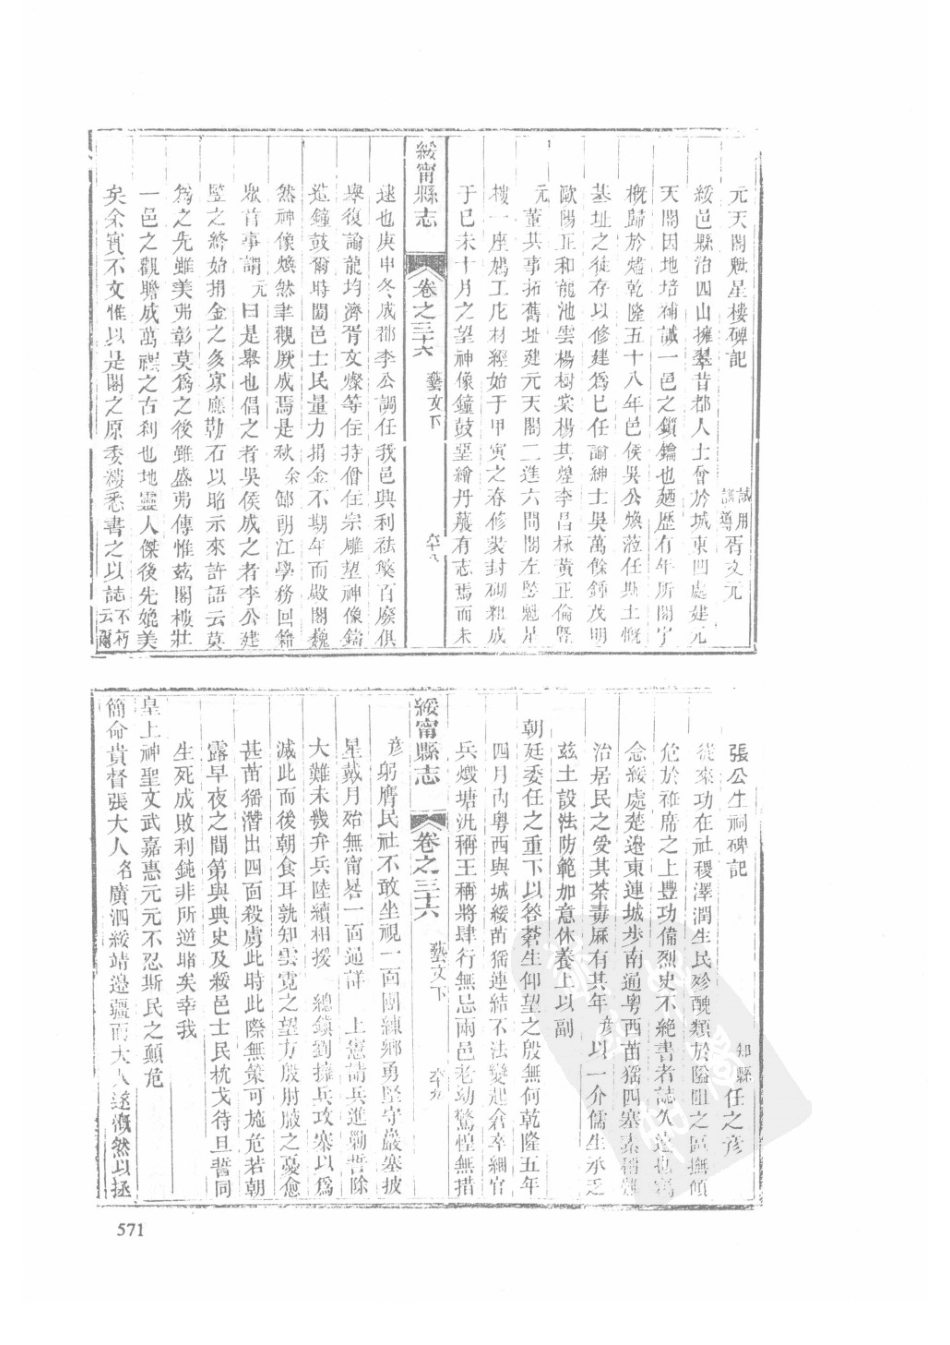 元天閣魁星樓碑記
試用訓導胥文元
綏邑縣治四山擁翠昔都人士曾於城東凹處建元
天閣因地培補誠一邑之鎖鑰也廼歷有年所閣宇
概歸於燼乾隆五十八年邑侯吳公煥蒞任斯土慨
基址之徒存以修建爲已任諭紳士吳萬餘鍾茂明
歐陽正和龍池雲楊樹棠楊其煌李昌秝黃正倫暨
元董其事拓舊址建元天閣二進六間閣左竪魁星
樓一座鳩工庀材經始于甲寅之春修裝封砌粗成
于已未十月之望神像鐘鼓堊繪丹蔉有志焉而未
逮也庚申冬成都李公調任我邑興利祛獘百廢俱
舉復諭龍均濟胥文燦等住持僧住宗雕塑神像鑄
造鐘鼓爾時闔邑士民量力捐金不期年而殿閣巍
然神像煥然聿觀厥成焉是秋余郃朗江學務回籍
眾首事謂元曰是舉也倡之者吳侯成之者李公建
竪之終始捐金之多寡應勒石以昭示來許語云莫
爲之先雖美弗彰莫爲之後雖盛弗傳惟茲閣樓壯
一邑之觀瞻成萬禩之古刹也地靈人傑後先媲美
矣余實不文惟以是閣之原委縷悉書之以誌不朽云爾
綏甯縣志
卷之三十六
藝文下
六十八
張公生祠碑記
知縣任之彥
從來功在社稷澤潤生民殄醜類於險阻之區撫傾
危於袵席之上豐功偉烈史不絶書者誌久遠也竊
念綏處楚邊東連城步南通粵西苗猺四塞素稱難
治居民之受其荼毒厤有其年彥以一介儒生承乏
茲土設法防範加意休養上以副
朝廷委任之重下以答蒼生仰望之殷無何乾隆五年
四月內粵西與城綏苗猺連結不法變起倉卒綑官
兵燬塘汛稱王稱將肆行無忌兩邑老幼驚惶無措
彥躬膺民社不敢坐視一面團練鄉勇堅守嚴塞披
星戴月殆無甯晷一面通詳 上憲請兵進勦誓除
大難未幾弁兵陸續相援 總鎮劉擁兵攻寨以爲
滅此而後朝食耳孰知雲霓之望方殷肘腋之憂愈
甚苗猺潛出四面殺虜此時此際無策可施危若朝
露早夜之間第與典史及綏邑士民枕戈待旦誓同
生死成敗利鈍非所逆睹矣幸我
皇上神聖文武嘉惠元元不忍斯民之顛危
簡命貴督張大人名廣泗綏靖邊疆而大人遂慨然以拯
綏甯縣志
卷之三十六
藝文下
六十九
571